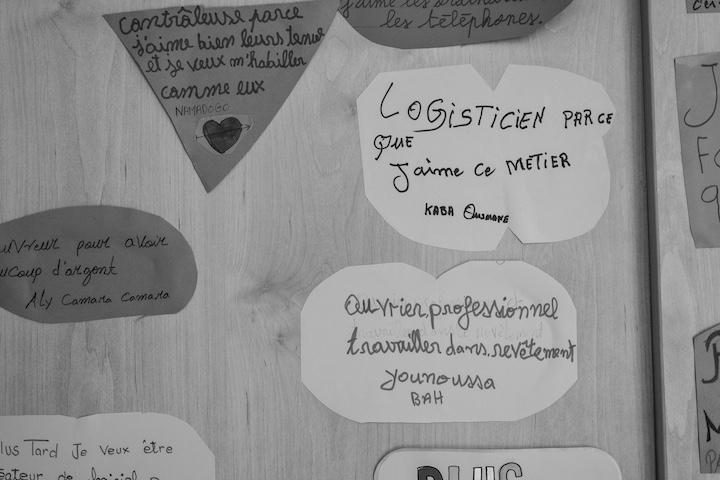 contrôleuse parce
j'aime bien leurs tenue
et je veux m'habiller
comme eux
NAMADOGO
les téléphones.
LOGISTICIEN PARCE
QUE
J'aime ce METIER
KABA Ousmane
pour avoir
d'argent
Aly Camara Camara
Ouvrier professionnel
travailler dans revêtement
younoussa
BAH
Tard Je veux être
de
PLUS